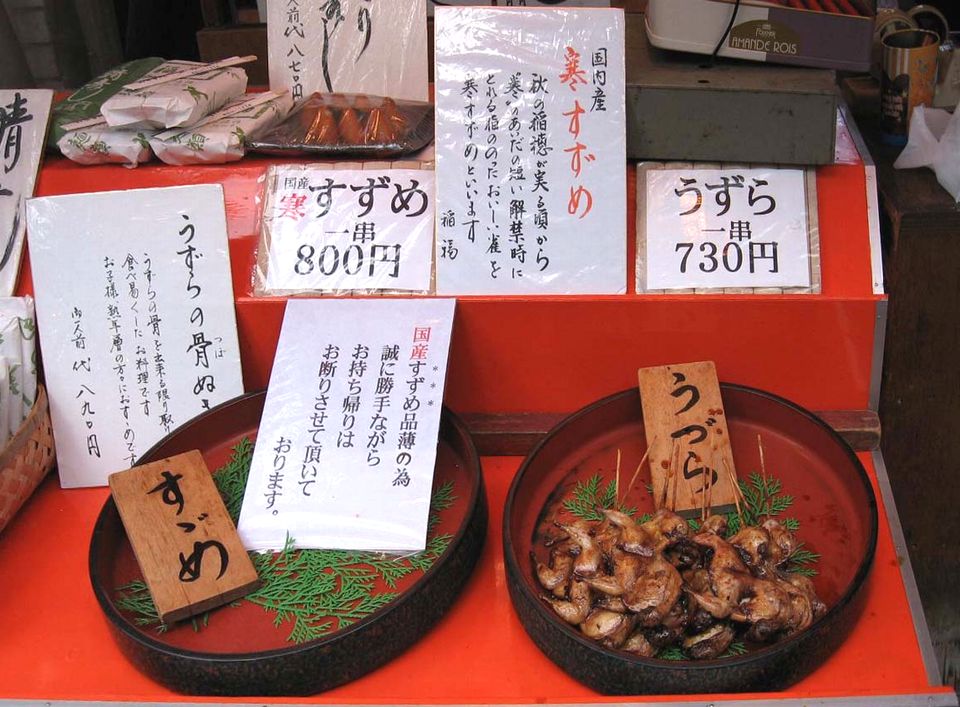 人前代 八七〇円
国内産
寒すずめ
秋の稲穂が実る頃から
寒のあだの短い解禁時に
とれる脂ののったおいしい雀を
寒すずめといいます
稲福
AMANDE ROIS
国産
寒すずめ
一串
800円
うずら
一串
730円
うずらの骨ぬき
うずらの骨を出来る限り取り
食べ易くしたお料理です
お子様、熟年層の方々におすゝめです
壱人前 代 八九〇円
国産すずめ品薄の為
誠に勝手ながら
お持ち帰りは
お断りさせて頂いて
おります。
すゞめ
うづら